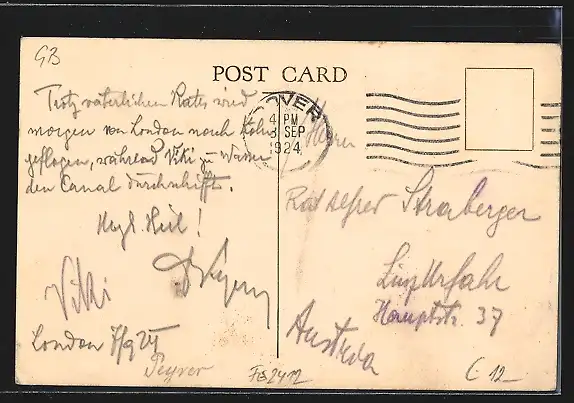 GB
POST CARD
Trotz väterlichen Rates wird
morgen von London nach Köln
geflogen, während Viki zu Wasser
den Canal durchschifft.
Heil!
Viki
London 7/9 24
Peyrer
DOVER
4 PM
8 SEP
1924
Herrn
Rat Alfred Straberger
Linz Urfahr
Hauptstr. 37
Austria
FS2412
C 12-